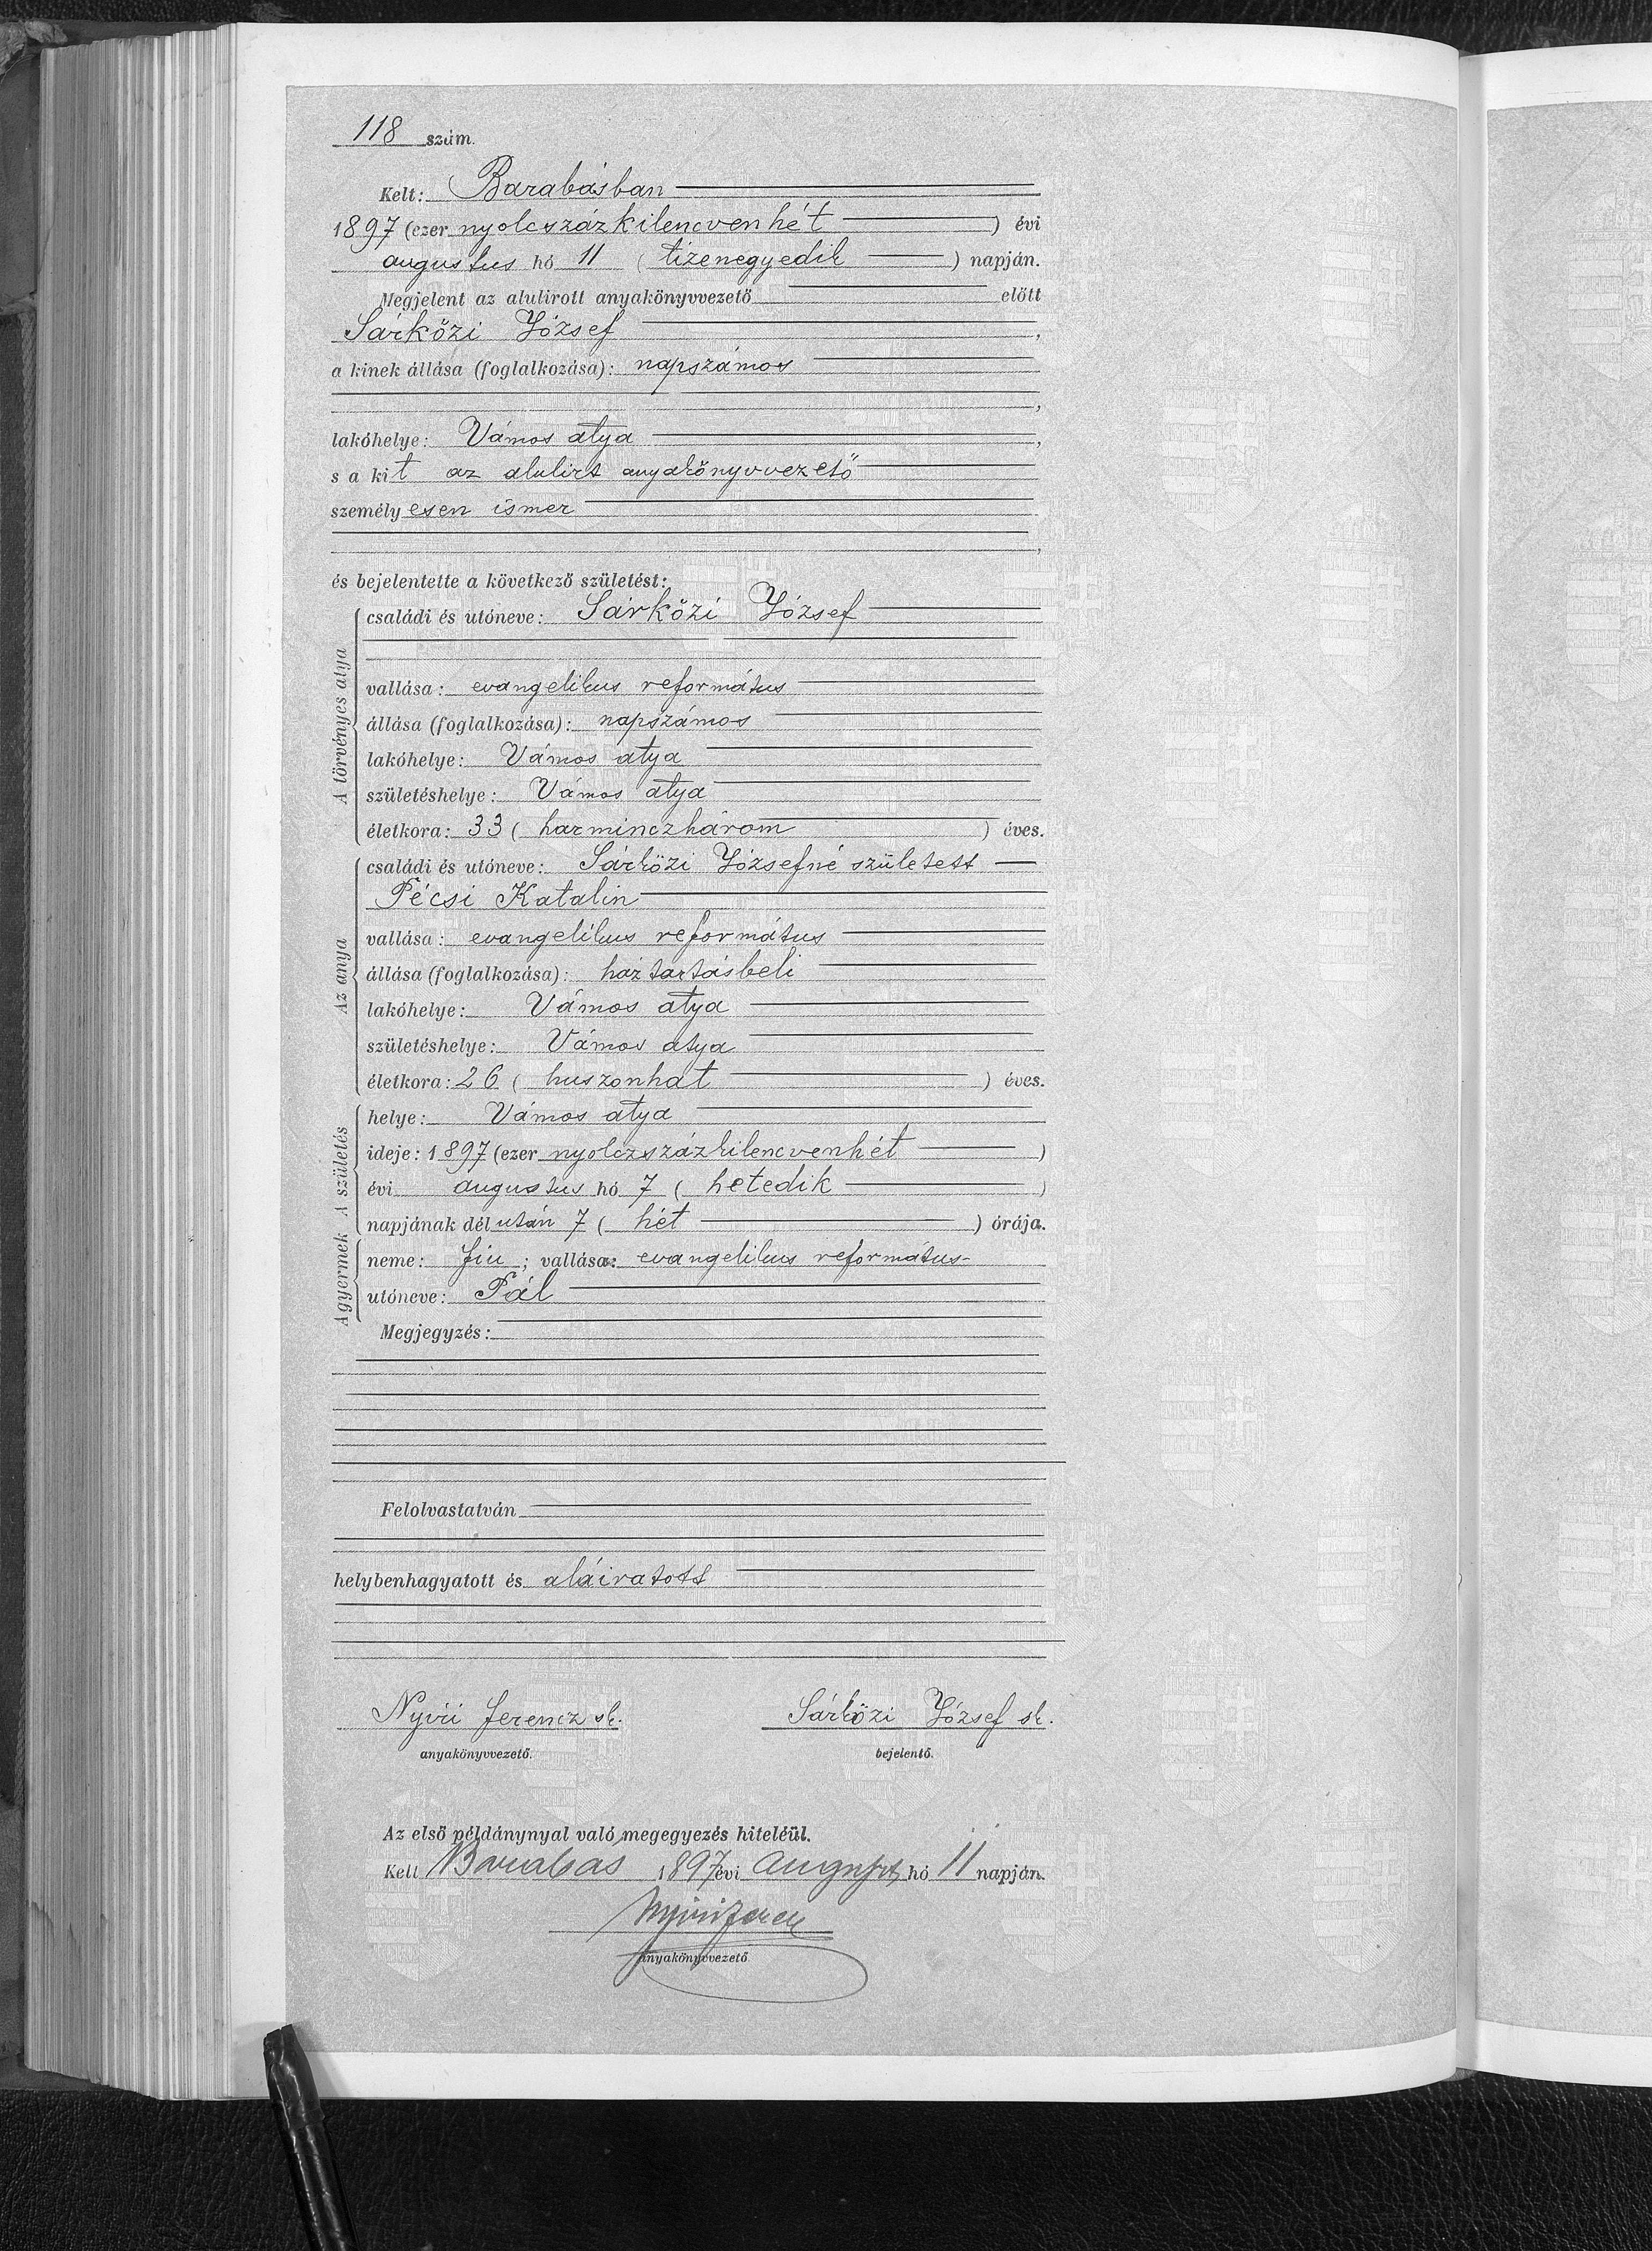 118 szám.
Kelt: Barabásban
1897 (ezer nyolcszázkilencvenhét) évi
augustus hó 11 (tizenegyedik) napján.
Megjelent az alulirott anyakönyvvezető előtt
Sárközi József,
a kinek állása (foglalkozása): napszámos
,
lakóhelye: Vámos atya,
s a kit az alulirt anyakönyvvezető
személyesen ismer
,
és bejelentette a következő születést:
A törvényes atya
családi és utóneve: Sárközi József
vallása: evangelikus református
állása (foglalkozása): napszámos
lakóhelye: Vámos atya
születéshelye: Vámos atya
életkora: 33 (harminczhárom) éves.
Az anya
családi és utóneve: Sárközi Józsefné született
Pécsi Katalin
vallása: evangelikus református
állása (foglalkozása): háztartásbeli
lakóhelye: Vámos atya
születéshelye: Vámos atya
életkora: 26 (huszonhat) éves.
A születés
helye: Vámos atya
ideje: 1897 (ezer nyolczszázkilencvenhét)
évi augustus hó 7 (hetedik)
napjának délután 7 (hét) órája.
A gyermek
neme: fiu; vallása: evangelikus református
utóneve: Pál
Megjegyzés:
Felolvastatván
helybenhagyatott és aláiratott
Nyíri Ferencz sk. Sárközi József sk.
anyakönyvvezető. bejelentő.
Az első példánynyal való megegyezés hiteléül.
Kelt Barabás 1897 évi Augusztus hó 11 napján.
Nyíri Ferencz
anyakönyvvezető